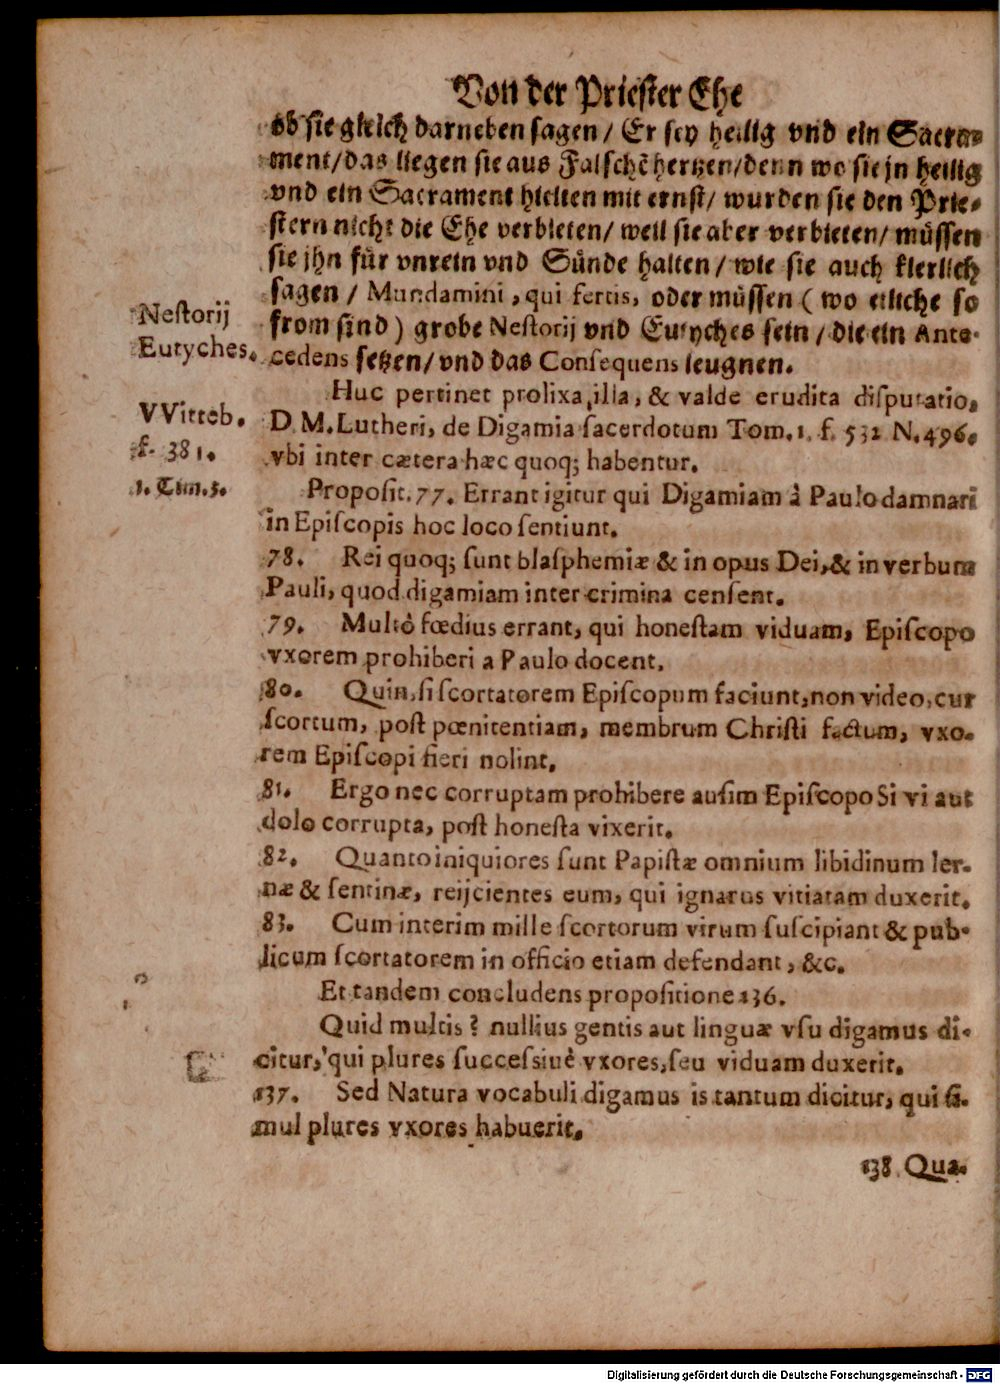 Von der Priester Ehe
ob sie gleich darneben sagen / Er sey heilig vnd ein Sacra-
ment/das liegen sie aus Falschē hertzen/denn wo sie jn heilig
vnd ein Sacrament hielten mit ernst/ wurden sie den Prie-
stern nicht die Ehe verbieten/ weil sie aber verbieten/ müssen
sie jhn für vnrein vnd Sünde halten / wie sie auch klerlich
sagen / Mundamini, qui fertis, oder müssen ( wo etliche so
from sind ) grobe Nestorij vnd Eutyches sein / die ein Ante-
cedens setzen/ vnd das Consequens leugnen.
Nestorij
Eutyches.
Huc pertinet prolixa illa, & valde erudita disputatio,
D. M. Lutheri, de Digamia sacerdotum Tom. 1. f. 532 N. 496.
vbi inter cætera hæc quoq; habentur.
VVitteb.
f. 381.
1. Tim. 3.
Proposit. 77. Errant igitur qui Digamiam à Paulo damnari
in Episcopis hoc loco sentiunt.
78. Rei quoq; sunt blasphemiæ & in opus Dei, & in verbum
Pauli, quod digamiam inter crimina censent.
79. Multò fœdius errant, qui honestam viduam, Episcopo
vxorem prohiberi a Paulo docent.
80. Quin, si scortatorem Episcopum faciunt, non video, cur
scortum, post pœnitentiam, membrum Christi factum, vxo-
rem Episcopi fieri nolint.
81. Ergo nec corruptam prohibere ausim Episcopo Si vi aut
dolo corrupta, post honesta vixerit.
82. Quanto iniquiores sunt Papistæ omnium libidinum ler-
næ & sentinæ, reijcientes eum, qui ignarus vitiatam duxerit.
83. Cum interim mille scortorum virum suscipiant & pub-
licum scortatorem in officio etiam defendant, &c.
Et tandem concludens propositione 136.
Quid multis? nullius gentis aut linguæ vsu digamus di-
citur, qui plures successiuè vxores, seu viduam duxerit.
137. Sed Natura vocabuli digamus is tantum dicitur, qui si-
mul plures vxores habuerit.
138 Qua-
Digitalisierung gefördert durch die Deutsche Forschungsgemeinschaft - DFG